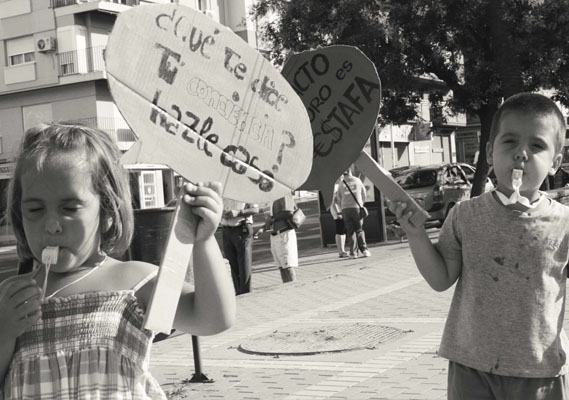 ¿Qué te dice
Tú conciencia?
hazle caso
ES
ESTAFA